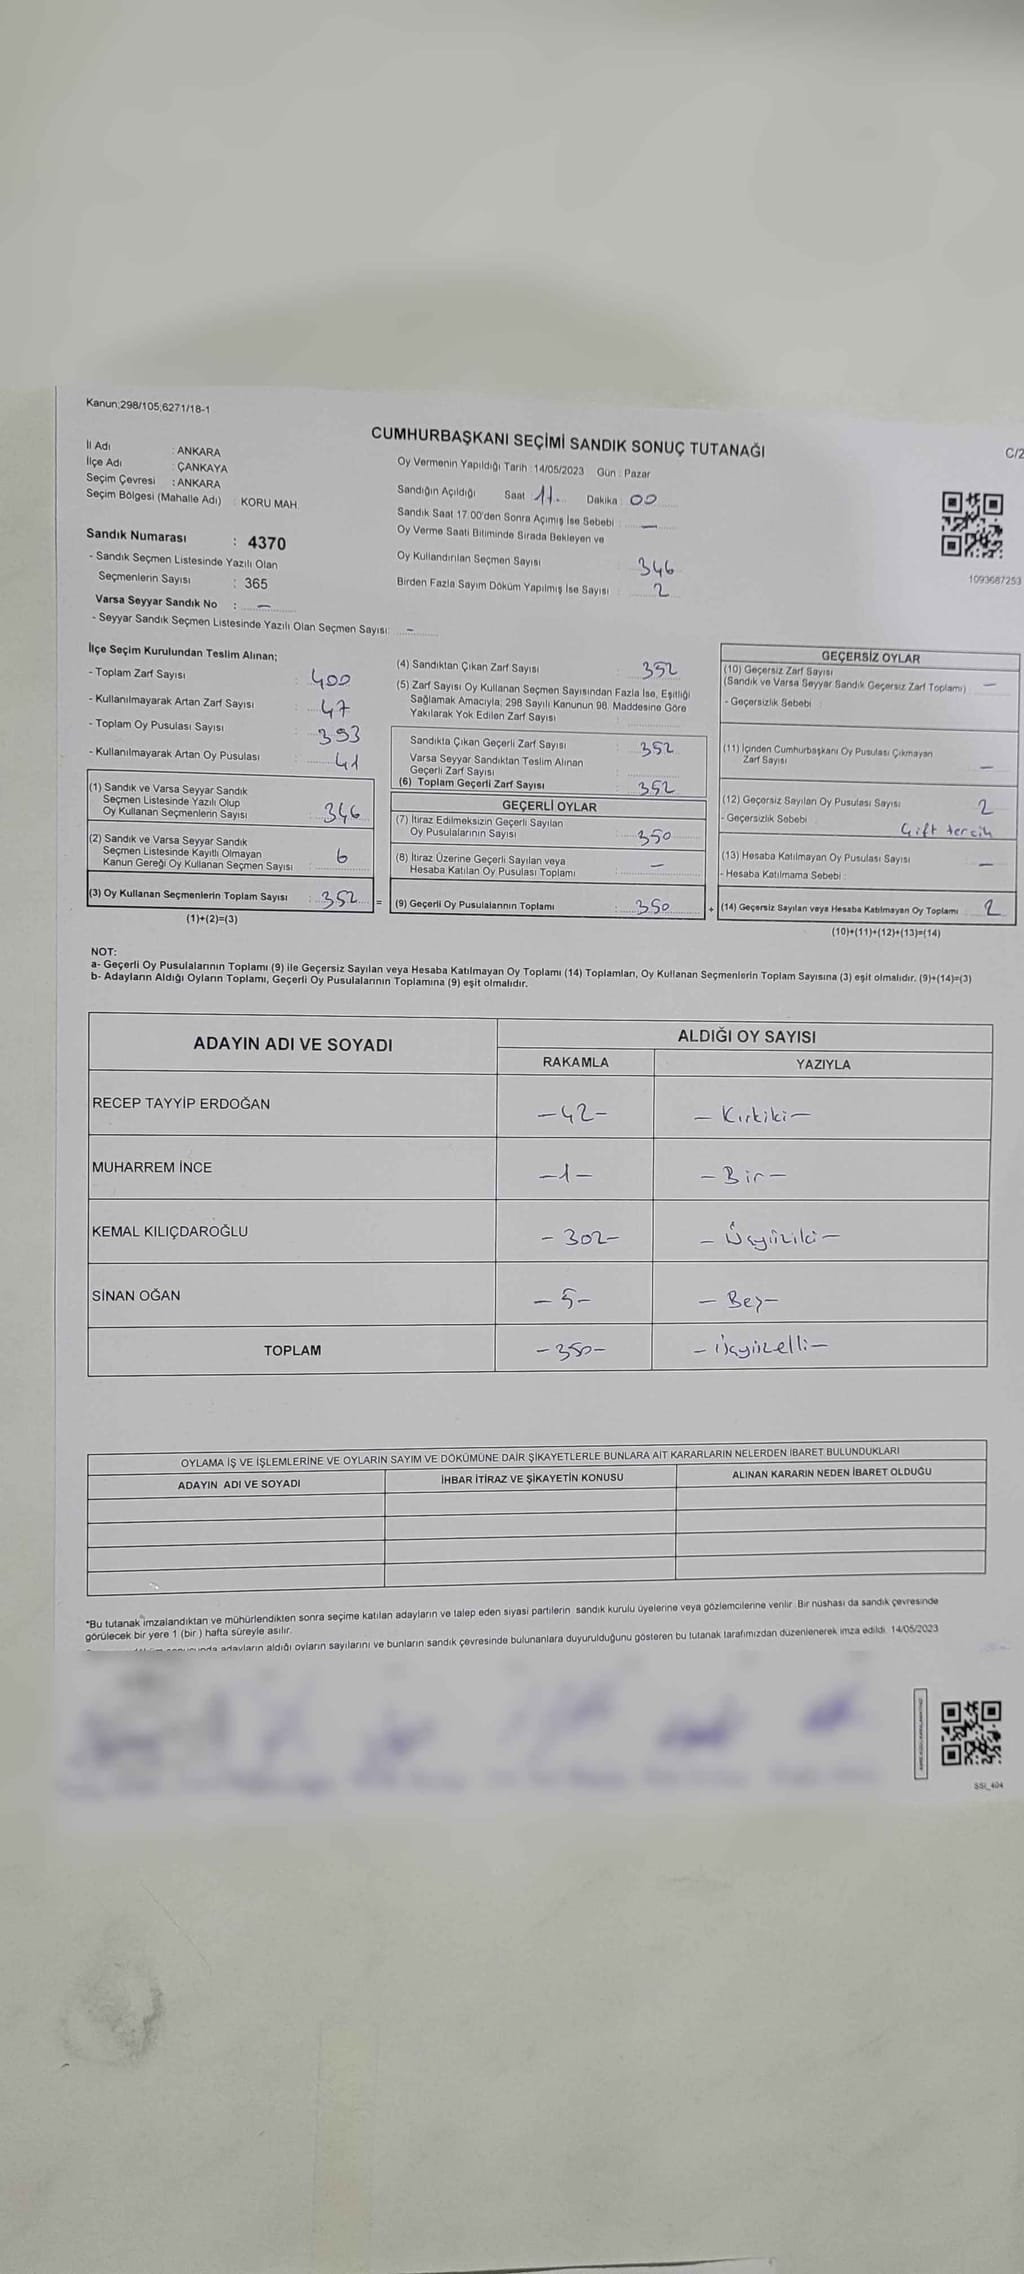 Kanun;298/105;6271/18-1
CUMHURBAŞKANI SEÇİMİ SANDIK SONUÇ TUTANAĞI
C/2
İl Adı : ANKARA
İlçe Adı : ÇANKAYA
Seçim Çevresi : ANKARA
Seçim Bölgesi (Mahalle Adı) : KORU MAH.
Oy Vermenin Yapıldığı Tarih : 14/05/2023 Gün : Pazar
Sandığın Açıldığı Saat 17 Dakika : 00
Sandık Saat 17:00'den Sonra Açımış İse Sebebi : —
Oy Verme Saati Bitiminde Sırada Bekleyen ve
Oy Kullandırılan Seçmen Sayısı : 346
Birden Fazla Sayım Döküm Yapılmış İse Sayısı : 2
1093687253
Sandık Numarası : 4370
- Sandık Seçmen Listesinde Yazılı Olan
Seçmenlerin Sayısı : 365
Varsa Seyyar Sandık No : —
- Seyyar Sandık Seçmen Listesinde Yazılı Olan Seçmen Sayısı: —
İlçe Seçim Kurulundan Teslim Alınan;
- Toplam Zarf Sayısı : 400
- Kullanılmayarak Artan Zarf Sayısı : 47
- Toplam Oy Pusulası Sayısı : 393
- Kullanılmayarak Artan Oy Pusulası : 41
(1) Sandık ve Varsa Seyyar Sandık
Seçmen Listesinde Yazılı Olup
Oy Kullanan Seçmenlerin Sayısı : 346
(2) Sandık ve Varsa Seyyar Sandık
Seçmen Listesinde Kayıtlı Olmayan
Kanun Gereği Oy Kullanan Seçmen Sayısı : 6
(3) Oy Kullanan Seçmenlerin Toplam Sayısı : 352 =
(1)+(2)=(3)
(4) Sandıktan Çıkan Zarf Sayısı : 352
(5) Zarf Sayısı Oy Kullanan Seçmen Sayısından Fazla İse, Eşitliği
Sağlamak Amacıyla; 298 Sayılı Kanunun 98. Maddesine Göre
Yakılarak Yok Edilen Zarf Sayısı :
Sandıkta Çıkan Geçerli Zarf Sayısı : 352
Varsa Seyyar Sandıktan Teslim Alınan
Geçerli Zarf Sayısı :
(6) Toplam Geçerli Zarf Sayısı : 352
GEÇERLİ OYLAR
(7) İtiraz Edilmeksizin Geçerli Sayılan
Oy Pusulalarının Sayısı : 350
(8) İtiraz Üzerine Geçerli Sayılan veya
Hesaba Katılan Oy Pusulası Toplamı : —
(9) Geçerli Oy Pusulalarının Toplamı : 350 +
GEÇERSİZ OYLAR
(10) Geçersiz Zarf Sayısı
(Sandık ve Varsa Seyyar Sandık Geçersiz Zarf Toplamı) : —
- Geçersizlik Sebebi :
(11) İçinden Cumhurbaşkanı Oy Pusulası Çıkmayan
Zarf Sayısı : —
(12) Geçersiz Sayılan Oy Pusulası Sayısı : 2
- Geçersizlik Sebebi : Çift tercih
(13) Hesaba Katılmayan Oy Pusulası Sayısı : —
- Hesaba Katılmama Sebebi :
(14) Geçersiz Sayılan veya Hesaba Katılmayan Oy Toplamı : 2
(10)+(11)+(12)+(13)=(14)
NOT:
a- Geçerli Oy Pusulalarının Toplamı (9) ile Geçersiz Sayılan veya Hesaba Katılmayan Oy Toplamı (14) Toplamları, Oy Kullanan Seçmenlerin Toplam Sayısına (3) eşit olmalıdır. (9)+(14)=(3)
b- Adayların Aldığı Oyların Toplamı, Geçerli Oy Pusulalarının Toplamına (9) eşit olmalıdır.
ADAYIN ADI VE SOYADI
ALDIĞI OY SAYISI
RAKAMLA YAZIYLA
RECEP TAYYİP ERDOĞAN -42- - Kırkiki -
MUHARREM İNCE -1- - Bir -
KEMAL KILIÇDAROĞLU -302- - Üçyüziki -
SİNAN OĞAN -5- - Beş -
TOPLAM -350- - Üçyüzelli -
OYLAMA İŞ VE İŞLEMLERİNE VE OYLARIN SAYIM VE DÖKÜMÜNE DAİR ŞİKAYETLERLE BUNLARA AİT KARARLARIN NELERDEN İBARET BULUNDUKLARI
ADAYIN ADI VE SOYADI İHBAR İTİRAZ VE ŞİKAYETİN KONUSU ALINAN KARARIN NEDEN İBARET OLDUĞU
*Bu tutanak imzalandıktan ve mühürlendikten sonra seçime katılan adayların ve talep eden siyasi partilerin sandık kurulu üyelerine veya gözlemcilerine verilir. Bir nüshası da sandık çevresinde
görülecek bir yere 1 (bir ) hafta süreyle asılır.
adayların aldığı oyların sayılarını ve bunların sandık çevresinde bulunanlara duyurulduğunu gösteren bu tutanak tarafımızdan düzenlenerek imza edildi. 14/05/2023
SSI_404